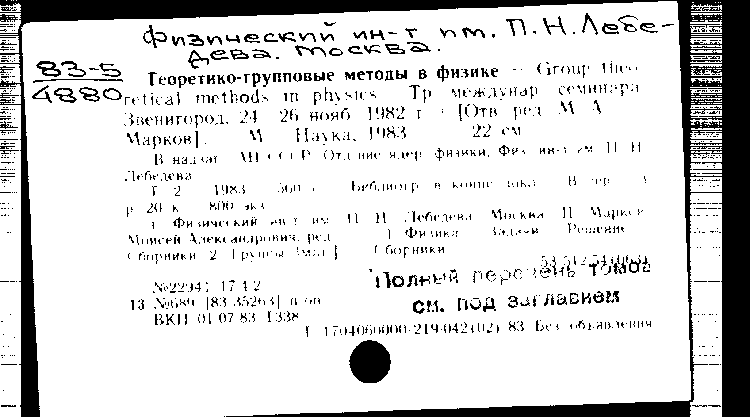 Физический ин-т им. П.Н. Лебе-
дева. Москва.
83-5
4880
Теоретико-групповые методы в физике = Group theo-
retical methods in physics Тр междунар семинара
Звенигород, 24 26 нояб 1982 г [Отв ред М А
Марков]. М Наука, 1983 22 см
В надзаг АН СССР Отд-ние ядер физики, Физ ин-т им П Н
Лебедева
Т 2 1983 Библиогр в конце В пер
р 20 к 800 экз
1 Физический ин-т им П Н Лебедева Москва II Марков
Моисей Александрович, ред 1 Физика Задачи Решение
Сборники 2 Группы [мат] Сборники
№22941 17 4 2
13 №689 [83-35263] п оп
ВКП 01 07 83 Т338
Полный перечень томов
см. под заглавием
1704060000-219-042(02) 83 Без объявления